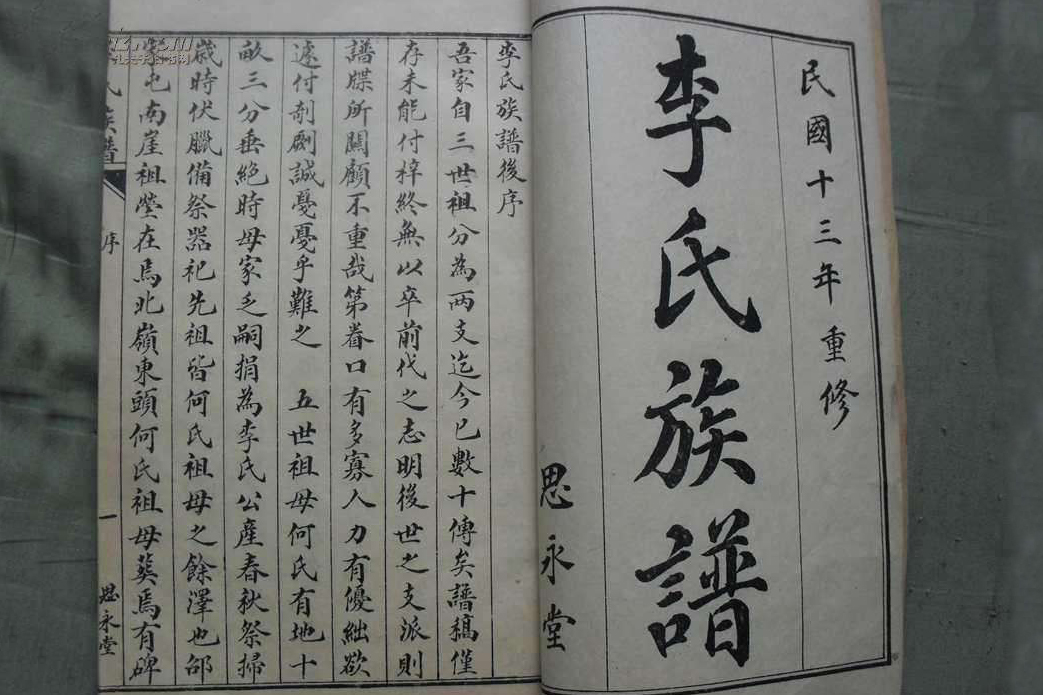 民國十三年重修
李氏族譜
思永堂
李氏族譜後序
吾家自三世祖分為兩支迄今已數十傳矣譜稿僅
存未能付梓終無以卒前代之志明後世之支派則
譜牒所關顧不重哉第眷口有多寡人力有優絀欲
遽付剞劂誠戞戞乎難之 五世祖母何氏有地十
畝三分垂絕時母家乏嗣捐為李氏公產春秋祭掃
歲時伏臘備祭器祀先祖皆何氏祖母之餘澤也邰
家屯南崖祖塋在焉北嶺東頭何氏祖母葬焉有碑
氏族譜
序
一
思永堂